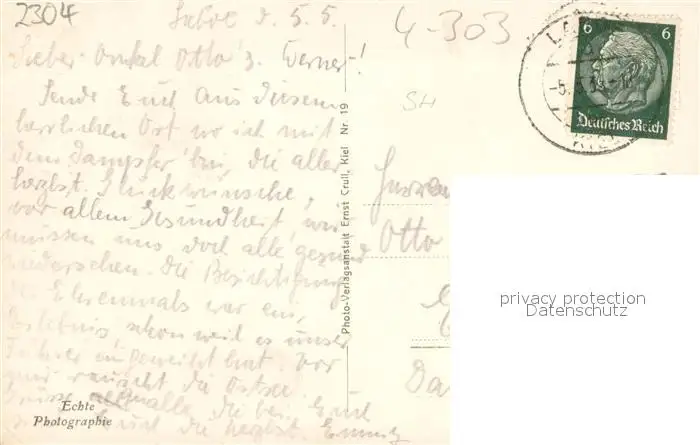 2304
4-303
Laboe d. 5.5.
Lieber Onkel Otto u. Werner!
SH
Sende Euch aus diesem
herrlichen Ort wo ich mit
dem Dampfer bin, die aller
herzlst. Glückwünsche,
vor allem Gesundheit, wir
müssen uns doch alle gesund
wiedersehen. Die Besichtigung
des Ehrenmals war ein
Erlebnis schon weil es unser
Führer eingeweiht hat. Vor
mir rauscht die Ostsee.
Grüsse alle, die bei Euch
Euch die herzlst.
Echte
Photographie
Photo-Verlagsanstalt Ernst Crull, Kiel Nr. 19
6 6
Deutsches Reich
KIEL
Herrn
Otto
privacy protection
Datenschutz